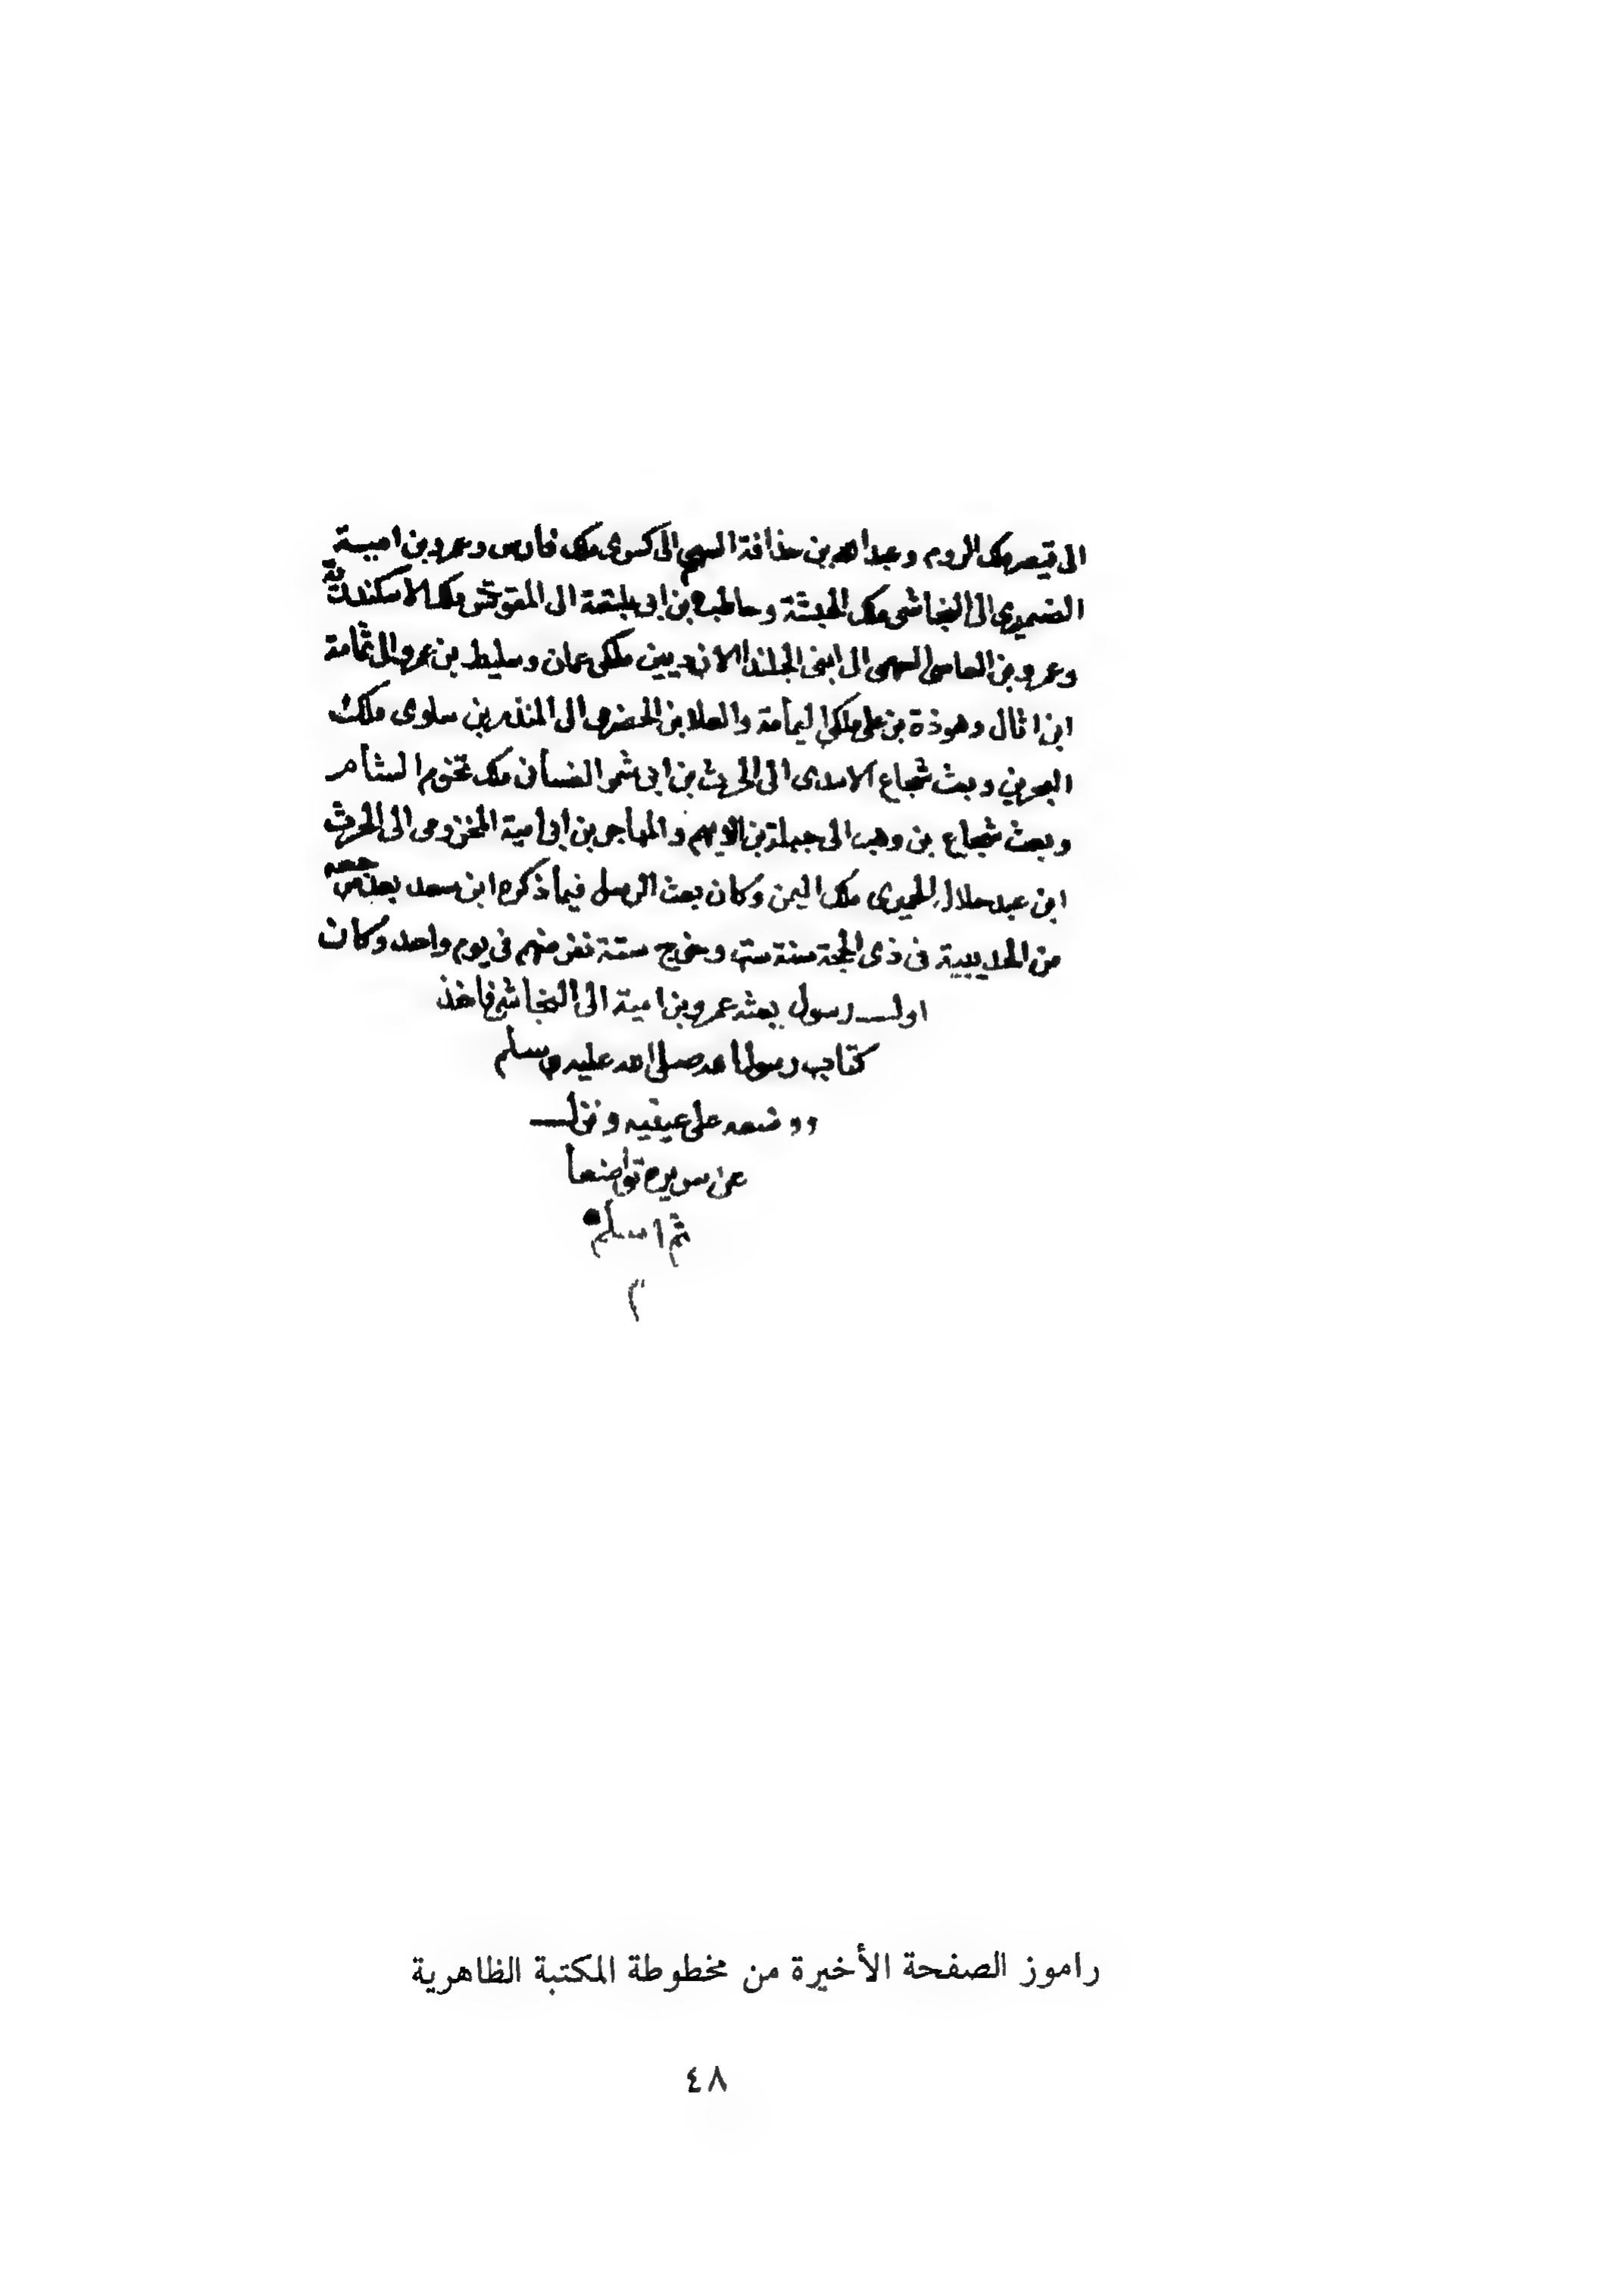 الى قيصر ملك الروم وعبد الله بن حذافة السهمى الى كسرى ملك فارس وعمرو بن امية
الضميرى الى النجاشى ملك الحبشة وحاطب بن ابى بلتعة الى المقوقس ملك الاسكندرية
وعمرو بن العاصى السهمى الى ابنى الجلندا الازديين ملكى عمان وسليط بن عمرو الى ثمامة
ابن اثال وهوذة بن على ملكى اليمامة والعلا بن الحضرمى الى المنذر بن ساوى ملك
البحرين وبعث شجاع الاسدى الى الحرث بن ابى شمر الغسانى ملك تخوم الشام
وبعث شجاع بن وهب الى جبلة بن الايهم والمهاجر بن ابى امية المخزومى الى الحرث
ابن عبد كلال الحميرى ملك اليمن وكان بعث الرسل فيما ذكره ابن سعد بعد
من الحديبية فى ذى الحجة سنة ست وخرج ستة نفر منهم فى يوم واحد وكان
اول رسول بعثه عمرو بن امية الى النجاشى فاخذ
كتاب رسول الله صلى الله عليه وسلم
ووضعه على عينيه ونزل
عن سريره تواضعا
ثم اسلم
م
راموز الصفحة الأخيرة من مخطوطة المكتبة الظاهرية
٤٨